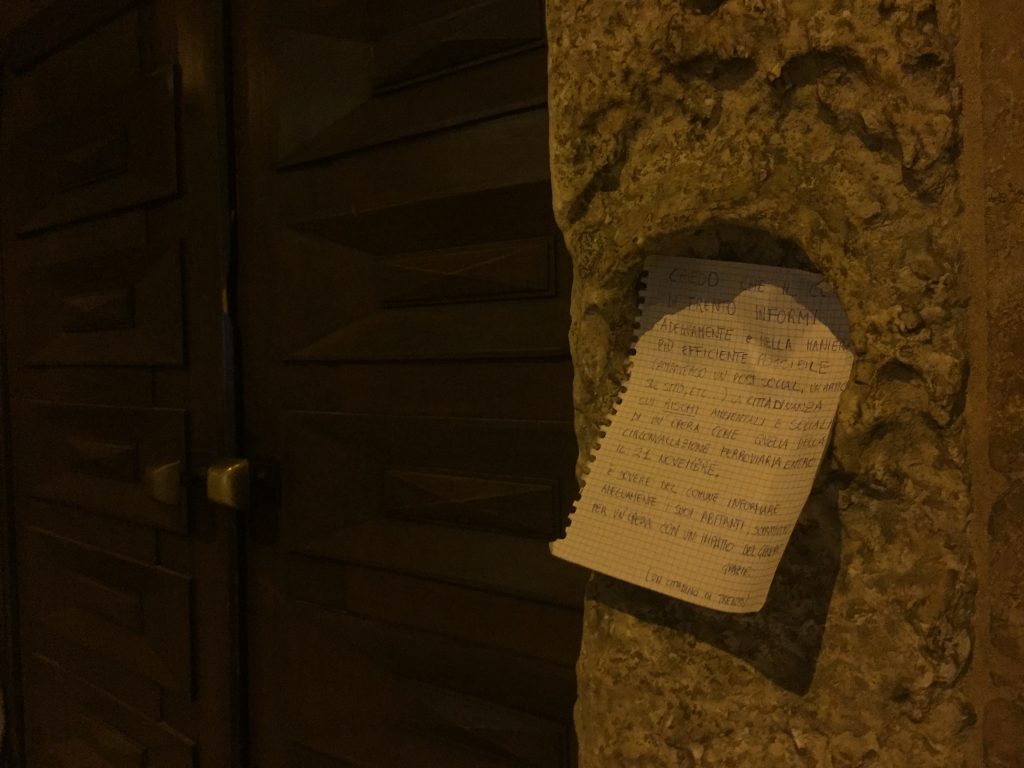 CHIEDO CHE IL CO
DI TRENTO INFORMI
ADEGUATAMENTE E NELLA MANIERA
PIÙ EFFICIENTE POSSIBILE
(ATTRAVERSO UN POST SOCIAL, UN ARTICO
SUL SITO, ETC..) LA CITTADINANZA
SUI RISCHI AMBIENTALI E SOCIALI
DI UN'OPERA COME QUELLA DELLA
CIRCONVALLAZIONE FERROVIARIA ENTRO
IL 21 NOVEMBRE.
È DOVERE DEL COMUNE INFORMARE
I SUOI ABITANTI, SOPRATTUTTO
PER UN'OPERA CON UN IMPATTO DEL GENERE
GRAZIE.
(UN CITTADINO DI TRENTO)